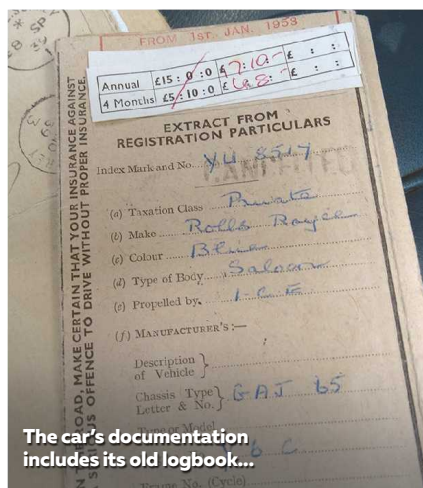 FROM 1ST. JAN. 1953
Annual £15 : 0 : 0 £7:10- £ : :
4 Months £5 : 10 : 0 £ : £ : :
EXTRACT FROM
REGISTRATION PARTICULARS
Index Mark and No. YU 8517
(a) Taxation Class Private
(b) Make Rolls Royce
(c) Colour Blue
(d) Type of Body Saloon
(e) Propelled by I.C.E
(f) MANUFACTURER'S :—
Description
of Vehicle
Chassis Type
Letter & No. GAJ 65
Type or Model
Frame No. (Cycle)
ROAD, MAKE CERTAIN THAT YOUR INSURANCE AGAINST
SERIOUS OFFENCE TO DRIVE WITHOUT PROPER INSURANCE.
The car's documentation
includes its old logbook...